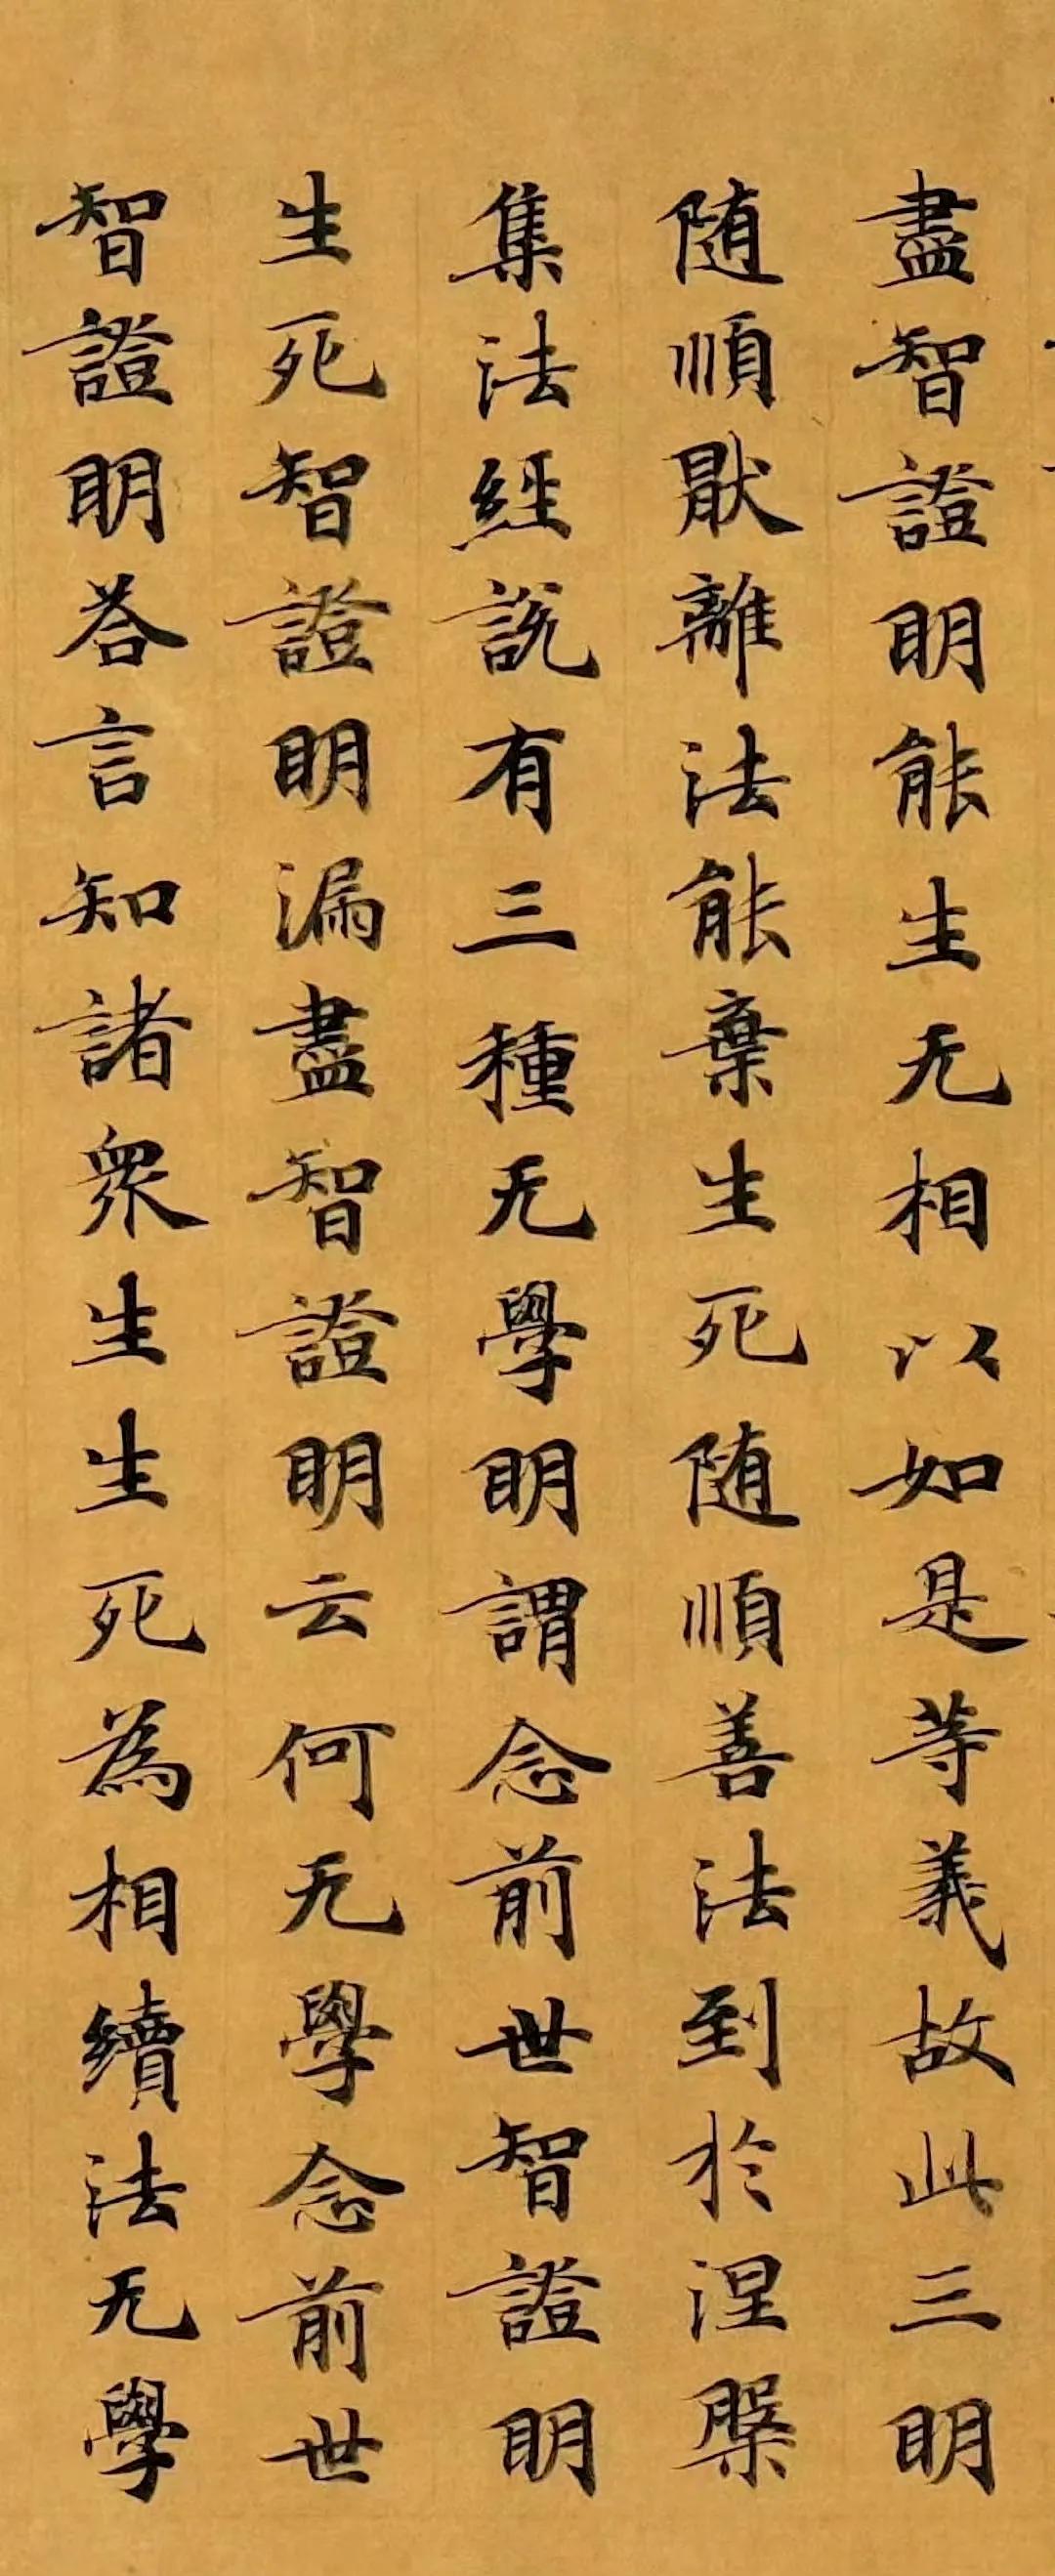 盡智證明能生无相以如是等義故此三明
随順猒離法能棄生死随順善法到於涅槃
集法經說有三種无學明謂念前世智證明
生死智證明漏盡智證明云何无學念前世
智證明荅言知諸衆生生死為相續法无學